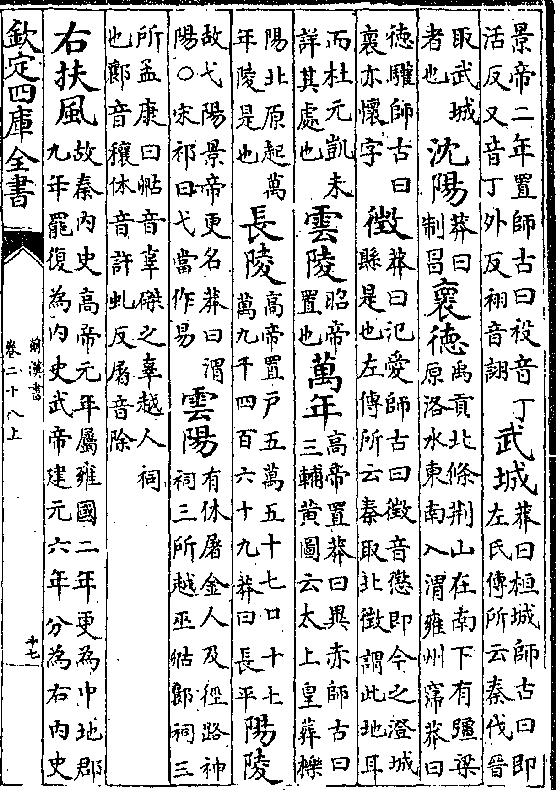 景帝二年置師古曰祋音丁
活反又音丁外反祤音詡
武城
莽曰桓城師古曰即
左氏傳所云秦伐晉
取武城
者也
沈陽
莽曰
制昌
襃德
禹貢北條荆山在南下有彊梁
原洛水東南入渭雍州寖莽曰
德驩師古曰
襃亦懷字
徴
莽曰氾愛師古曰徴音懲即今之澄城
縣是也左傳所云秦取北徴謂此地耳
而杜元凱未
詳其處也
雲陵
昭帝
置也
萬年
高帝置莽曰異赤師古曰
三輔黄圖云太上皇葬櫟
陽北原起萬
年陵是也
長陵
高帝置户五萬五十七口十七
萬九千四百六十九莽曰長平
陽陵
故弋陽景帝更名莽曰渭
陽○宋祁曰弋當作易
雲陽
有休屠金人及徑路神
祠三所越巫祠三
所孟康曰音辜磔之辜越人祠
也音穰休音許虬反屠音除
右扶風
故秦内史高帝元年屬雍國二年更為中地郡
九年罷復為内史武帝建元六年分為右内史
欽定四庫全書
前漢書
卷二十八上
十七